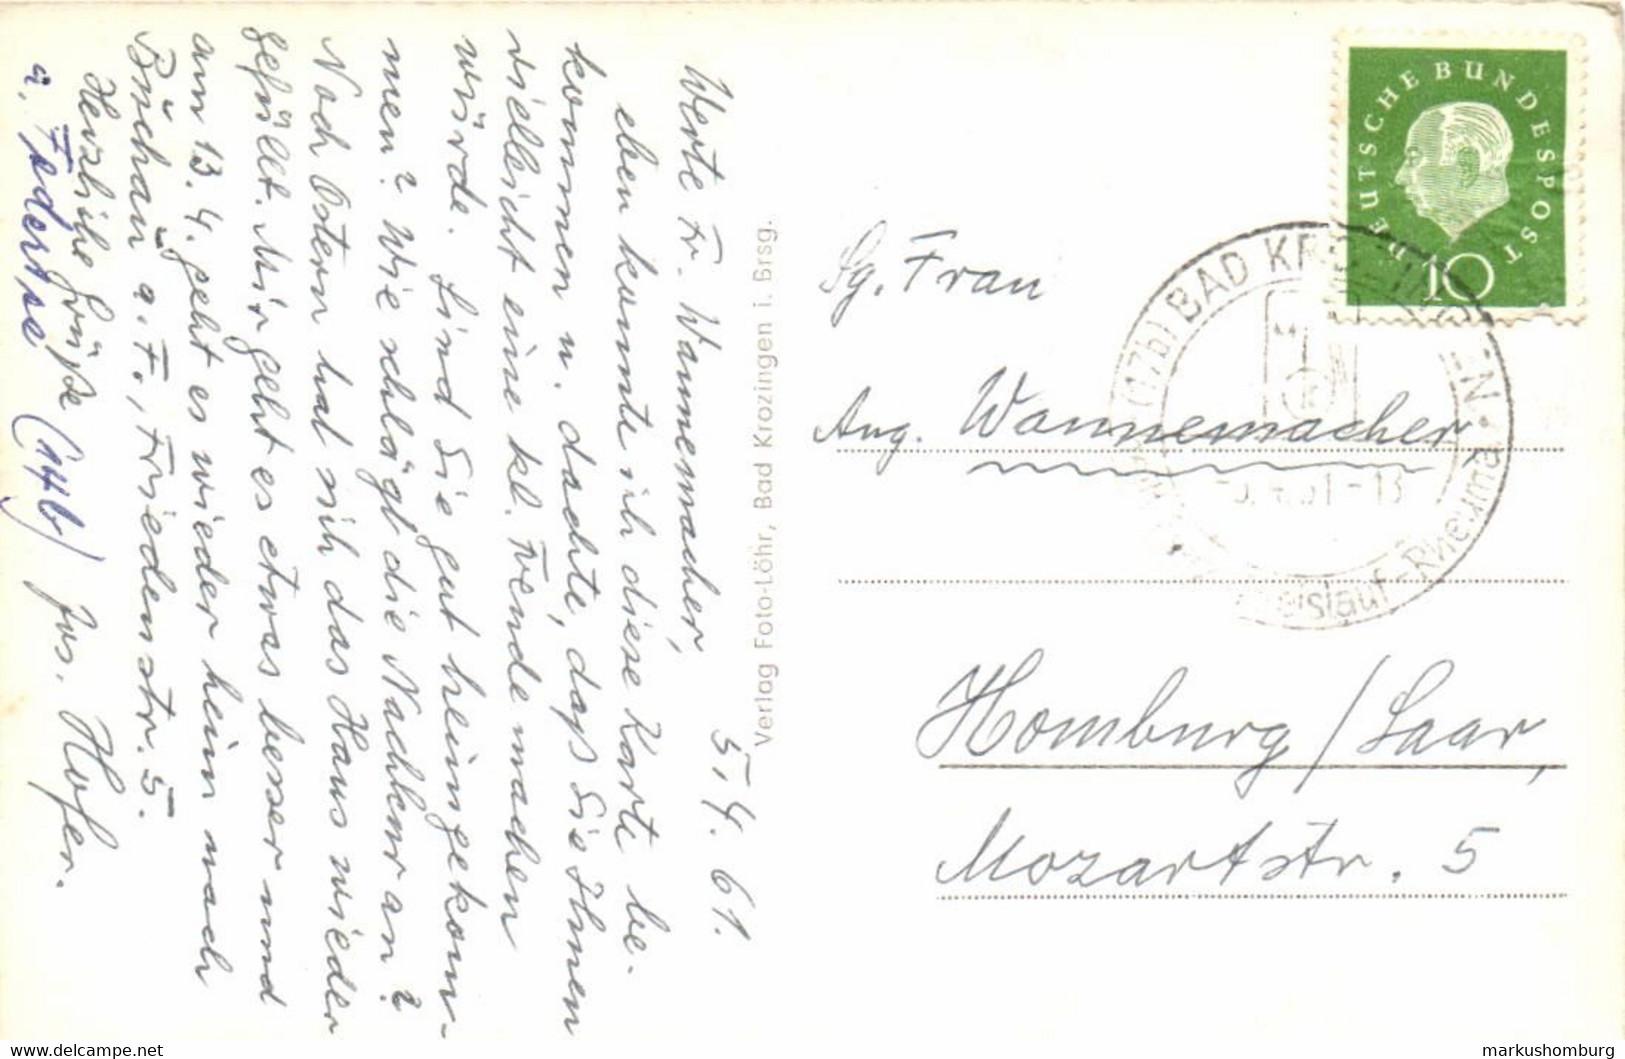 5.4.61.
Werte Fr. Wannemacher,
eben konnte ich diese Karte be-
kommen u. dachte, dass Sie Ihnen
vielleicht eine kl. Freude machen
würde. Sind Sie gut heimgekom-
men? Wie schlägt die Nachkur an?
Nach Ostern hat sich das Haus wieder
gefüllt. Mir geht es etwas besser und
am 13.4. geht es wieder heim nach
Büchau a. F., Friedenstr. 5.
Herzliche Grüße
a. Federsee (14b) Jos. Hofer.
Verlag Foto-Löhr, Bad Krozingen i. Brsg.
DEUTSCHE BUNDESPOST
10
(17b) BAD KROZINGEN
Kreislauf-Rheuma
4.61-13
Sg. Frau
Aug. Wannemacher
Homburg/Saar,
Mozartstr. 5
www.delcampe.net
markushomburg